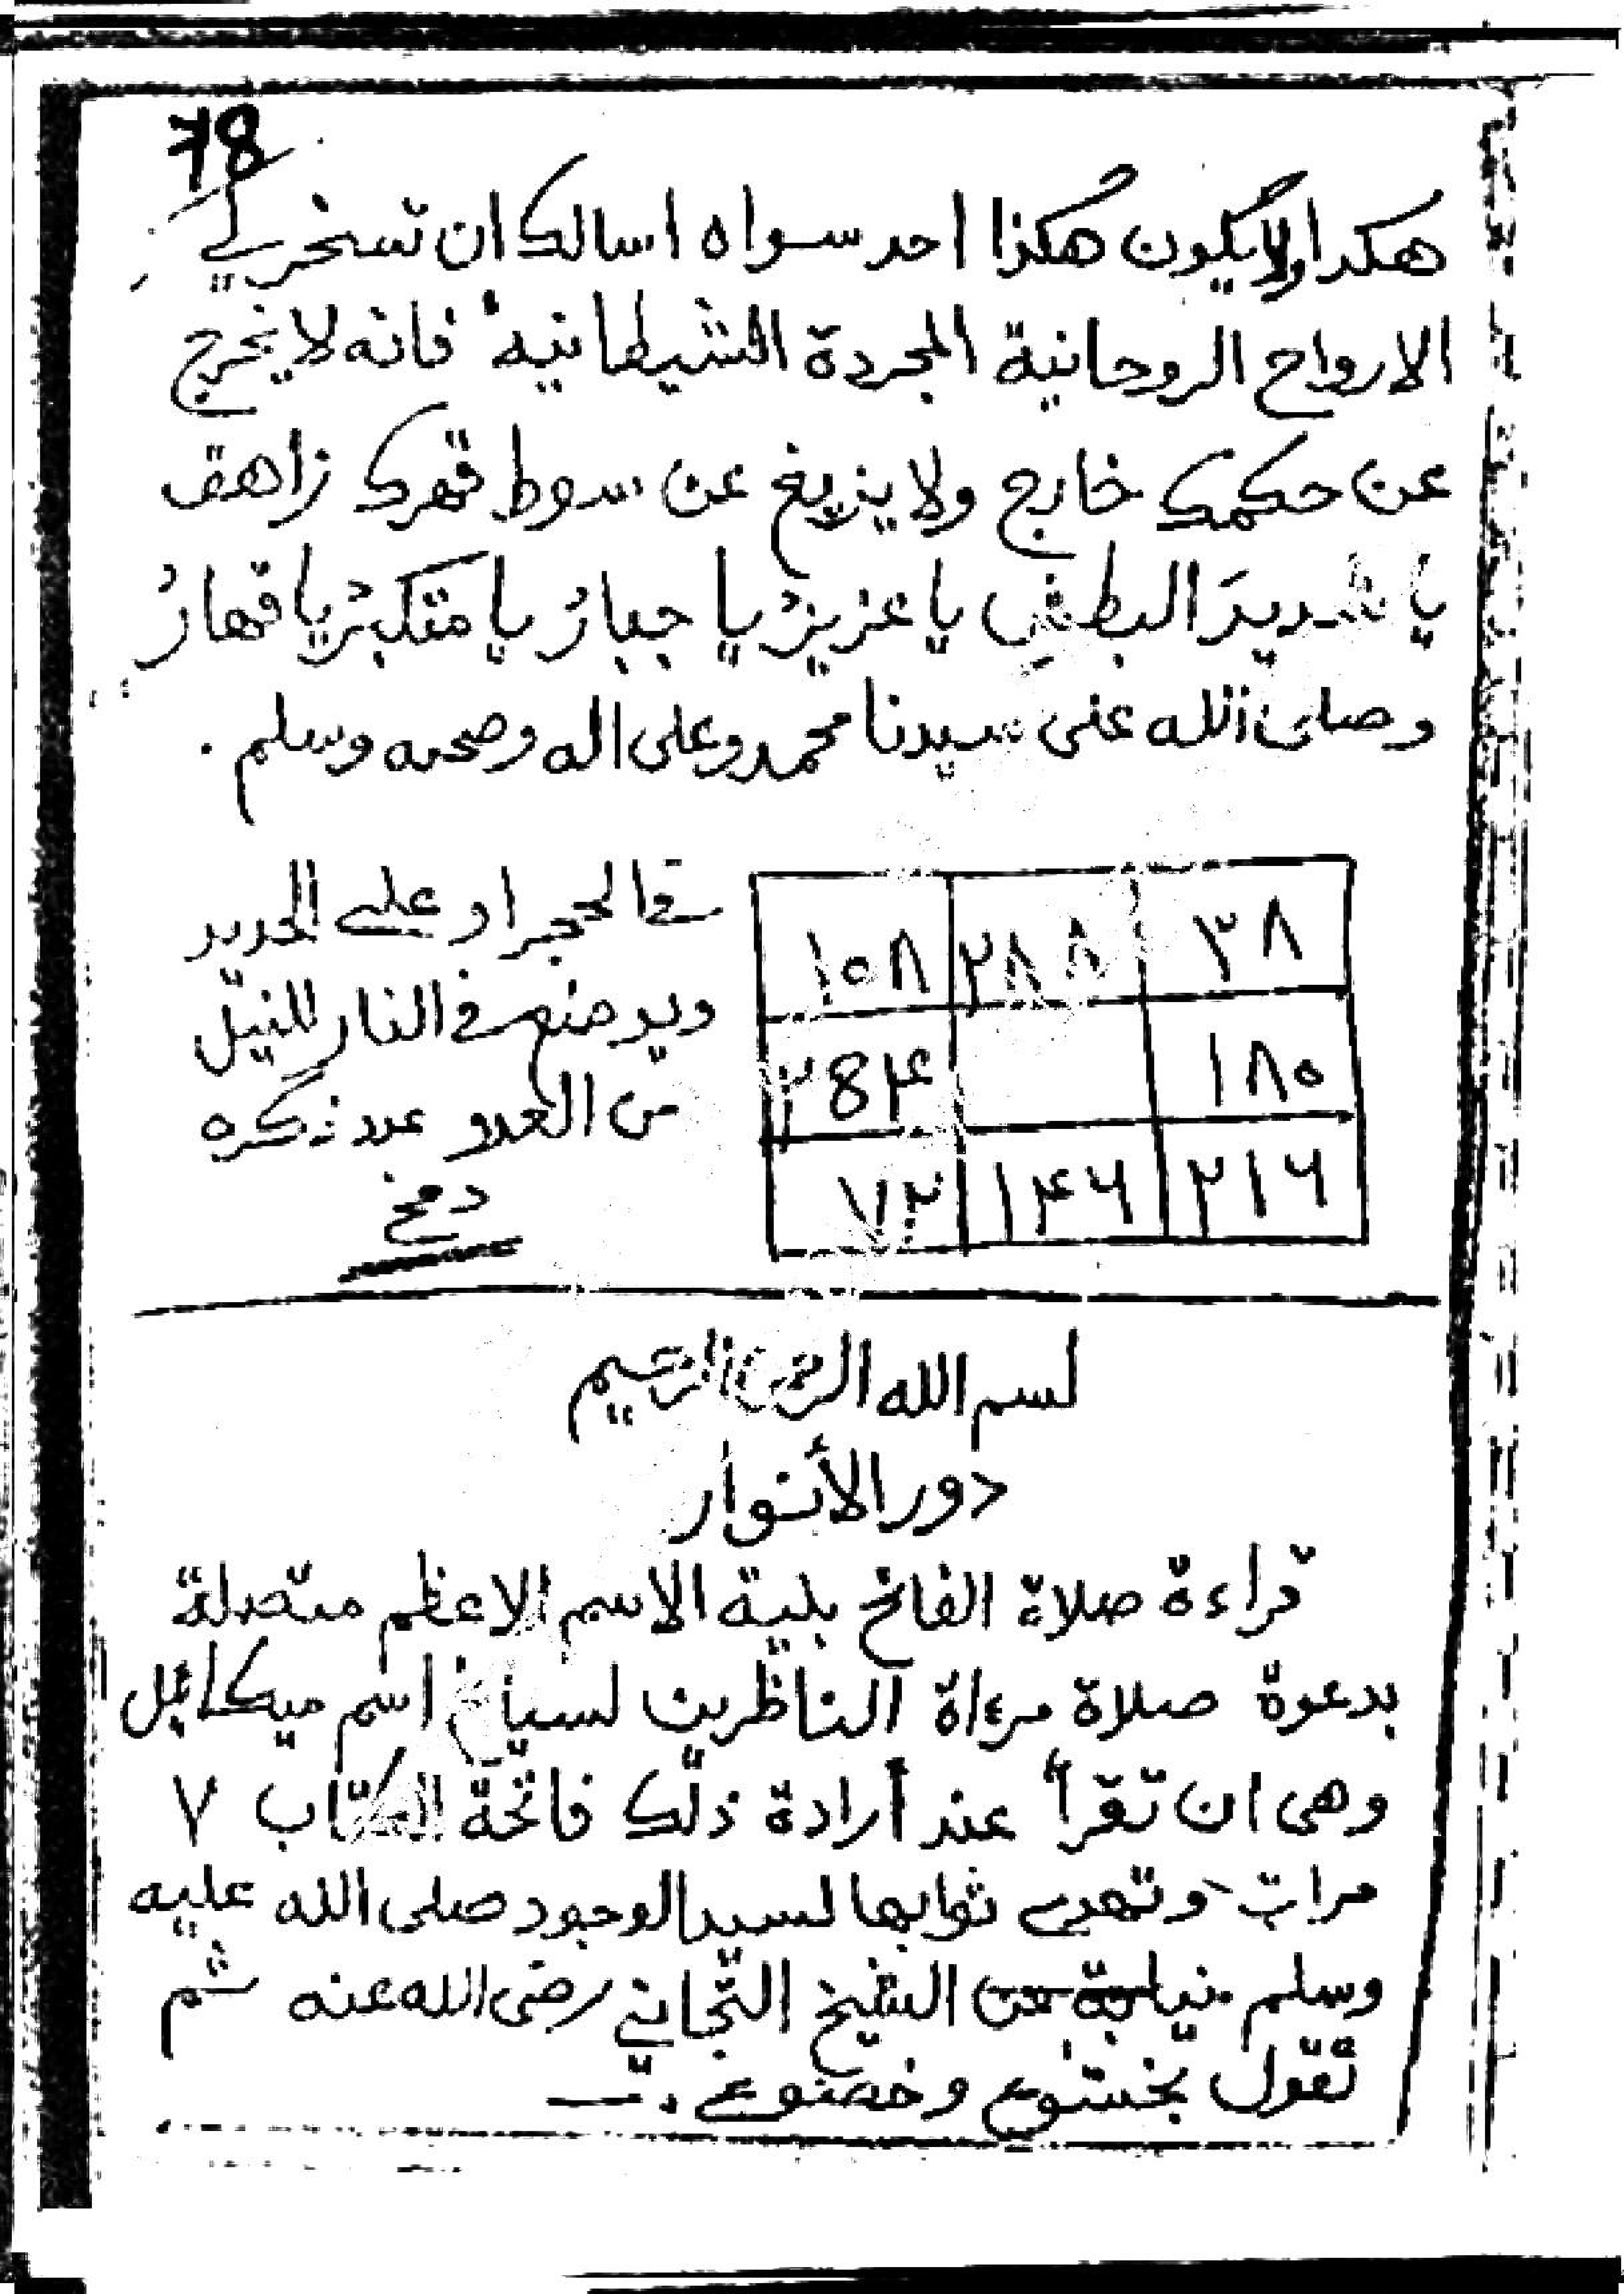 78
هكذا ولا يكون هكذا احد سواه اسالك ان تسخر لي
الارواح الروحانية المجردة الشيطانية فانه لا يخرج
عن حكمك خارج ولا يزيغ عن سوط قهرك زاهق
يا شديدَ البطش يا عزيزُ يا جبارُ يا متكبرُ يا قهارُ
وصلى الله على سيدنا محمد وعلى اله وصحبه وسلم .
٣٨ ٢٨٨ ١٥٨
١٨٠
٢١٦ ١٤٦ ٧٢
في الحجر او على الحديد
ويوضع في النار للنيل
من العدو عدد ذكره
دمخ
بسم الله الرحمن الرحيم
دور الأنوار
قراءة صلاة الفاتح بلية الاسم الاعظم متصلة
بدعوة صلاة مرءاة الناظرين اسم ميكائيل
وهى ان تقرأ عند أرادة ذلك فاتحة الكتاب ٧
مرات وتهدى ثوابها لسيد الوجود صلى الله عليه
وسلم نيابة عن الشيخ التجاني رضى الله عنه ثم
تقول بخشوع وخضوع .